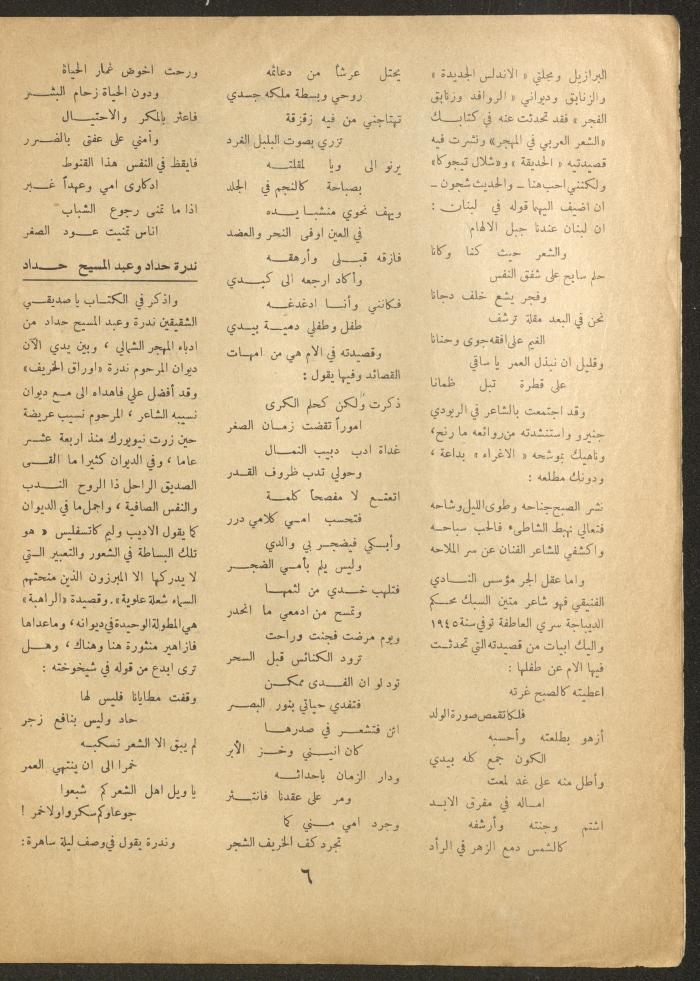 البرازيل ومجلتي « الاندلس الجديدة »
والزنابق وديواني « الروافد وزنابق
الفجر » فقد تحدثت عنه في كتابك
«الشعر العربي في المهجر» ونشرت فيه
قصيدتيه « الحديقة » و«شلال تيجوكا»
ولكنني احب هنا ـ والحديث شجون ـ
ان اضيف اليهما قوله في لبنان :
ان لبنان عندنا جبل الالهام
والشعر حيث كنا وكانا
حلم سابح على شفق النفس
وفجر يشع خلف دجانا
نحن في البعد مقلة ترشف
الغيم على افقه جوى وحنانا
وقليل ان نبذل العمر يا ساقي
على قطرة تبل ظمانا
وقد اجتمعت بالشاعر في الريودي
جنيرو واستنشدته من روائعه ما رنح،
وناهيك بموشحه « الاغراء » بداعة ،
ودونك مطلعه :
نشر الصبح جناحه وطوى الليل وشاحه
فتعالي نهبط الشاطىء فالحب سباحه
واكشفي للشاعر الفنان عن سر الملاحه
واما عقل الجر مؤسس النادي
الفنيقي فهو شاعر متين السبك محكم
الديباجة سري العاطفة توفي سنة ١٩٤٥
واليك ابيات من قصيدته التي تحدثت
فيها الام عن طفلها :
اعطيته كالصبح غرته
فلكا تقمص صورة الولد
أزهو بطلعته وأحسبه
الكون جمع كله بيدي
وأطل منه على غد لمعت
اماله في مفرق الابد
اشتم وجنته وأرشفه
كالشمس دمع الزهر في الرأد
يحتل عرشاً من دعائمه
روحي وبسطة ملكه جسدي
تهتاجني من فيه زقزقة
تزري بصوت البلبل الغرد
يرنو الى ويا لمقلته
بصباحة كالنجم في الجلد
ويهف نحوي منشبا يده
في العين اوفى النحر والعضد
فازقه قبلى وأرهقه
وأكاد ارجعه الى كبدي
فكانني وأنا ادغدغه
طفل وطفلي دمية بيدي
وقصيدته في الام هي من امهات
القصائد وفيها يقول :
ذكرت ولكن كحلم الكرى
اموراً تقضت زمان الصغر
غداة ادب دبيب النمال
وحولي تدب ظروف القدر
اتعتع لا مفصحاً كلمة
فتحسب امي كلامي درر
وأبكي فيضجر بي والدي
وليس يلم بأمي الضجر
فتلهب خدي من لثمها
وتمسح من ادمعي ما انحدر
ويوم مرضت فجنت وراحت
تزود الكنائس قبل السحر
تود لو ان الفدى ممكن
فتفدي حياتي بنور البصر
ائن فتشعر في صدرها
كان انيني وخز الأبر
ودار الزمان باحداثه
ومر على عقدنا فانتثر
وجرد امي مني كما
تجرد كف الخريف الشجر
ورحت اخوض غمار الحياة
ودون الحياة زحام البشر
فاعثر بالمكر والاحتيال
وأمني على عفتي بالضرر
فايقظ في النفس هذا القنوط
ادكارى امي وعهداً غبر
اذا ما تمنى رجوع الشباب
اناس تمنيت عود الصغر
ندرة حداد وعبد المسيح حداد
واذكر في الكتاب يا صديقي
الشقيقين ندرة وعبد المسيح حداد من
ادباء المهجر الشمالي ، وبين يدي الآن
ديوان المرحوم ندرة «اوراق الخريف»
وقد أفضل علي فاهداه الى مع ديوان
نسيبه الشاعر ، المرحوم نسيب عريضة
حين زرت نيويورك منذ اربعة عشر
عاما ، وفي الديوان كثيرا ما القى
الصديق الراحل ذا الروح الندب
والنفس الصافية ، واجمل ما في الديوان
كما يقول الاديب وليم كاتسفليس « هو
تلك البساطة في الشعور والتعبير التي
لا يدركها الا المبرزون الذين منحتهم
السماء شعلة علوية» . وقصيدة «الراهبة»
هي المطولة الوحيدة في ديوانه ، وماعداها
فازاهير منثورة هنا وهناك ، وهل
ترى ابدع من قوله في شيخوخته :
وقفت مطايانا فليس لها
حاد وليس بنافع زجر
لم يبق الا الشعر نسكبه
خمرا الى ان ينتهي العمر
يا ويل اهل الشعر كم شبعوا
جوعا وكم سكروا ولا خمر !
وندرة يقول في وصف ليلة ساهرة :
٦